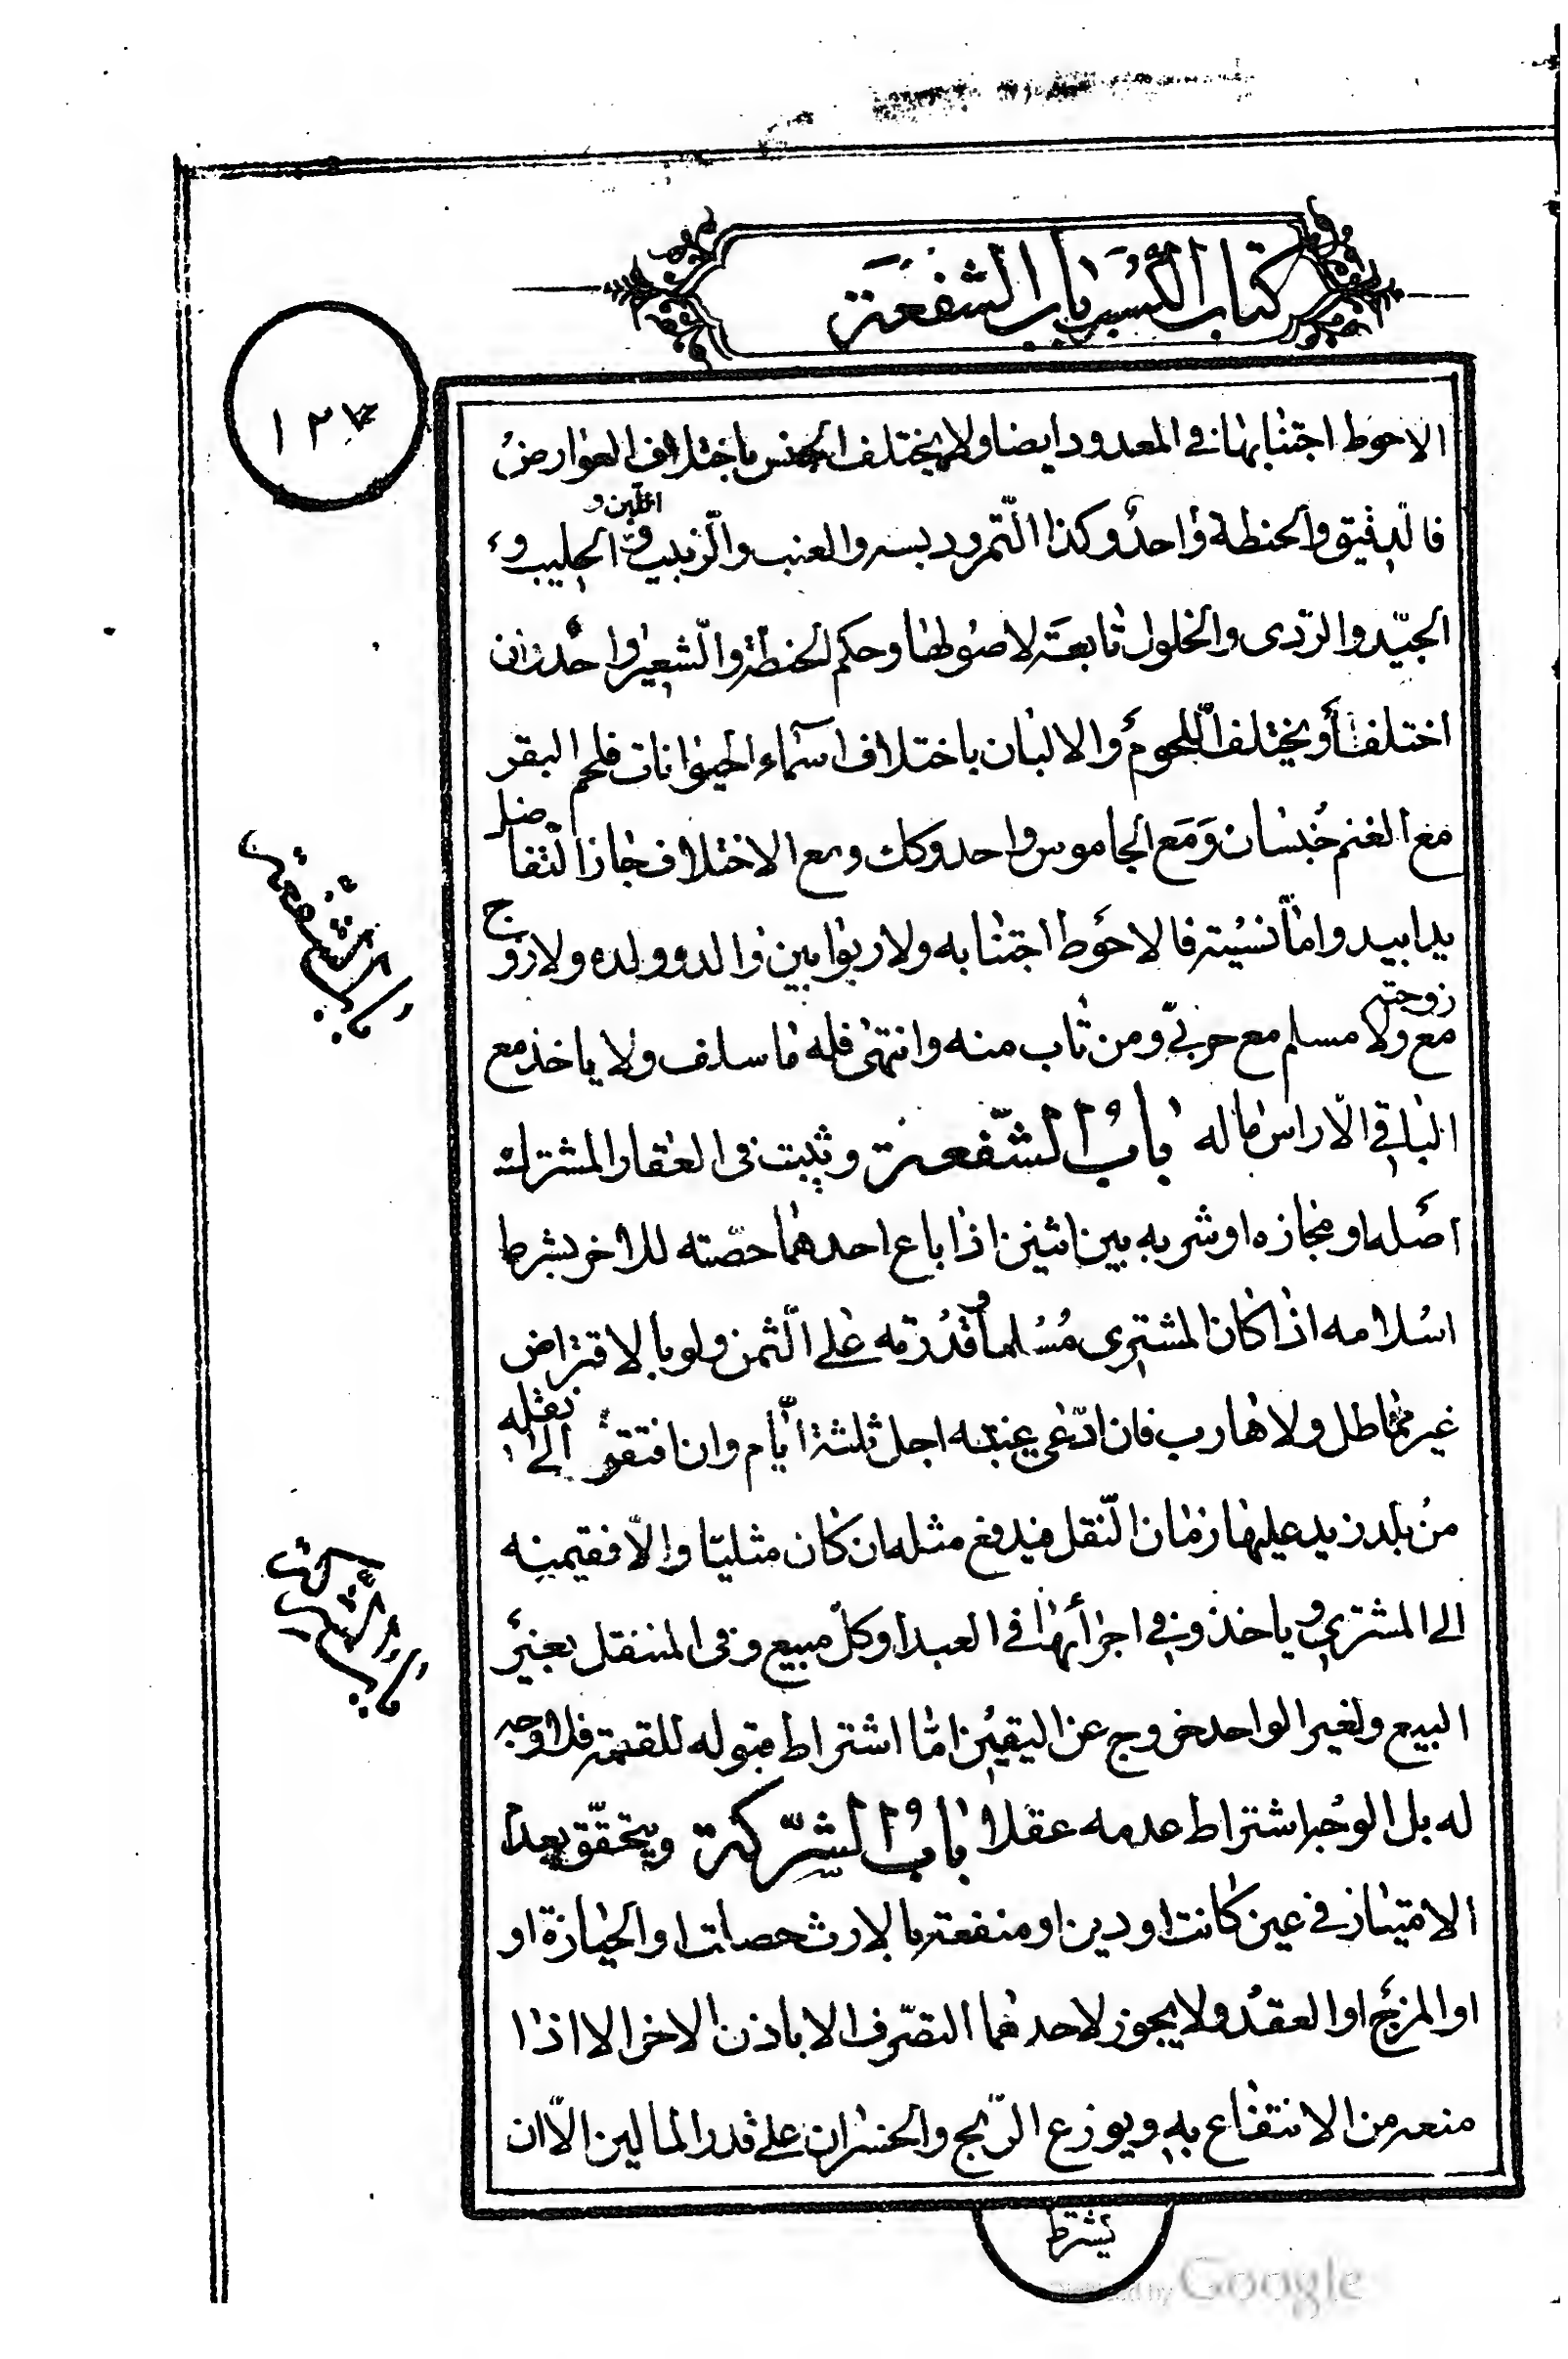 كتاب الكسب باب الشفعة
١٢٧
الاحوط اجتنابها في المعدود ايضا ولا يختلف الجنس باختلاف العوارض
فالدقيق والحنطة واحد وكذا التمر ودبسه والعنب والزبيب و اللبن و الحليب و
الجيّد والردى والخلول تابعة لاصولها وحكم الحنطة والشعير واحد وان
اختلفا و يختلف اللحوم والالبان باختلاف اسماء الحيوانات فلحم البقر
مع الغنم جنسان وَمَع الجاموس واحد وكك ومع الاختلاف جاز التفاضل
يدا بيد واما نسيئة فالاحوط اجتنابه ولا ربوا بين والد وولده ولا زوج
مع زوجته ولا مسلم مع حربيّ ومن تاب منه وانتهى فله ما سلف ولا ياخذ مع
الباقي الّا راس ماله بابُ الشّفعة و تثبت فى العقار المشترك
اصله او مجازه او شربه بين اثنين اذا باع احدهما حصّته للاخر بشرط
اسلامه اذا كان المشترى مُسْلما و قدرته على الثّمن ولو بالاقتراض
غير مماطل ولا هارب فان ادّعى غيبته اجل ثلثة ايّام وان افتقر الى نقله
من بلد زيد عليها زمان النّقل فيدفع مثله ان كان مثليّا والّا فقيمته
الى المشترى و ياخذ وفي اجرائها في العبد او كلّ مبيع وفى المنتقل بغير
البيع ولغير الواحد خروج عن اليقين امّا اشتراط قبوله للقسمة فلا وجه
له بل الوجه اشتراط عدمه عقلا بابُ الشّركة ويتحقّق بعدم
الامتياز في عين كانت او دين او منفعة بالارث حصلت او الحيازة او
او المزج او العقد ولا يجوز لاحدهما التصّرف الا باذن الاخر الا اذا
منعه من الانتفاع به ويوزع الرّبح والخسران على قدر المالين الّا ان
يشترط
باب الشفعة
باب الشّركة
Digitized by Google